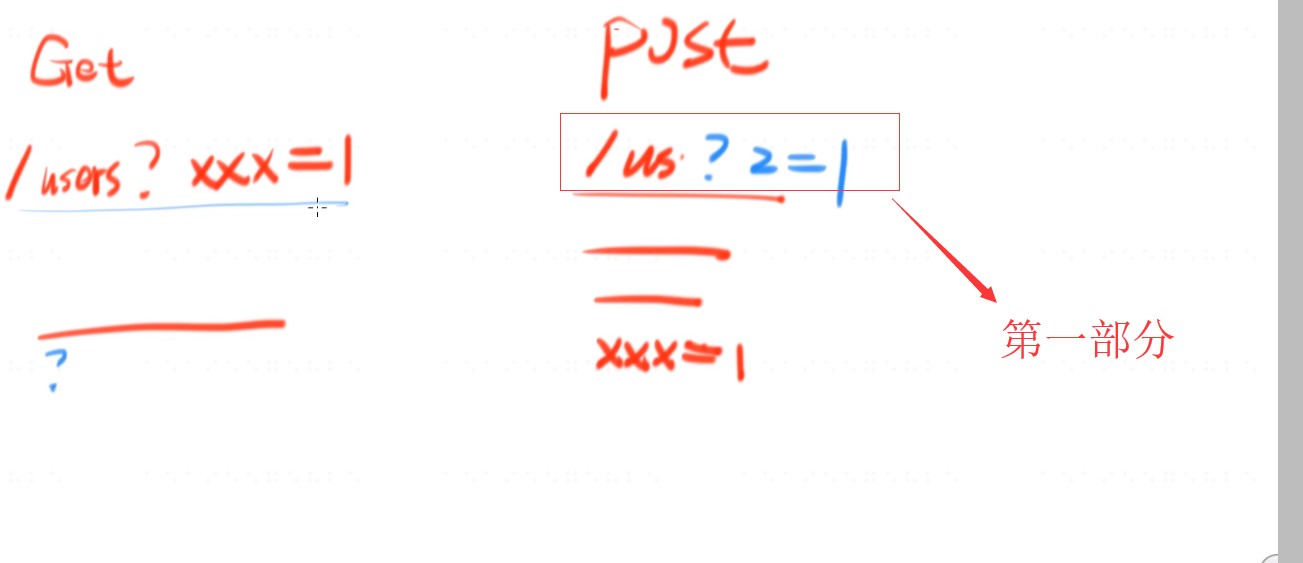 Get
/users? xxx=1
?
post
/us. ? 2=1
xxx=1
第一部分